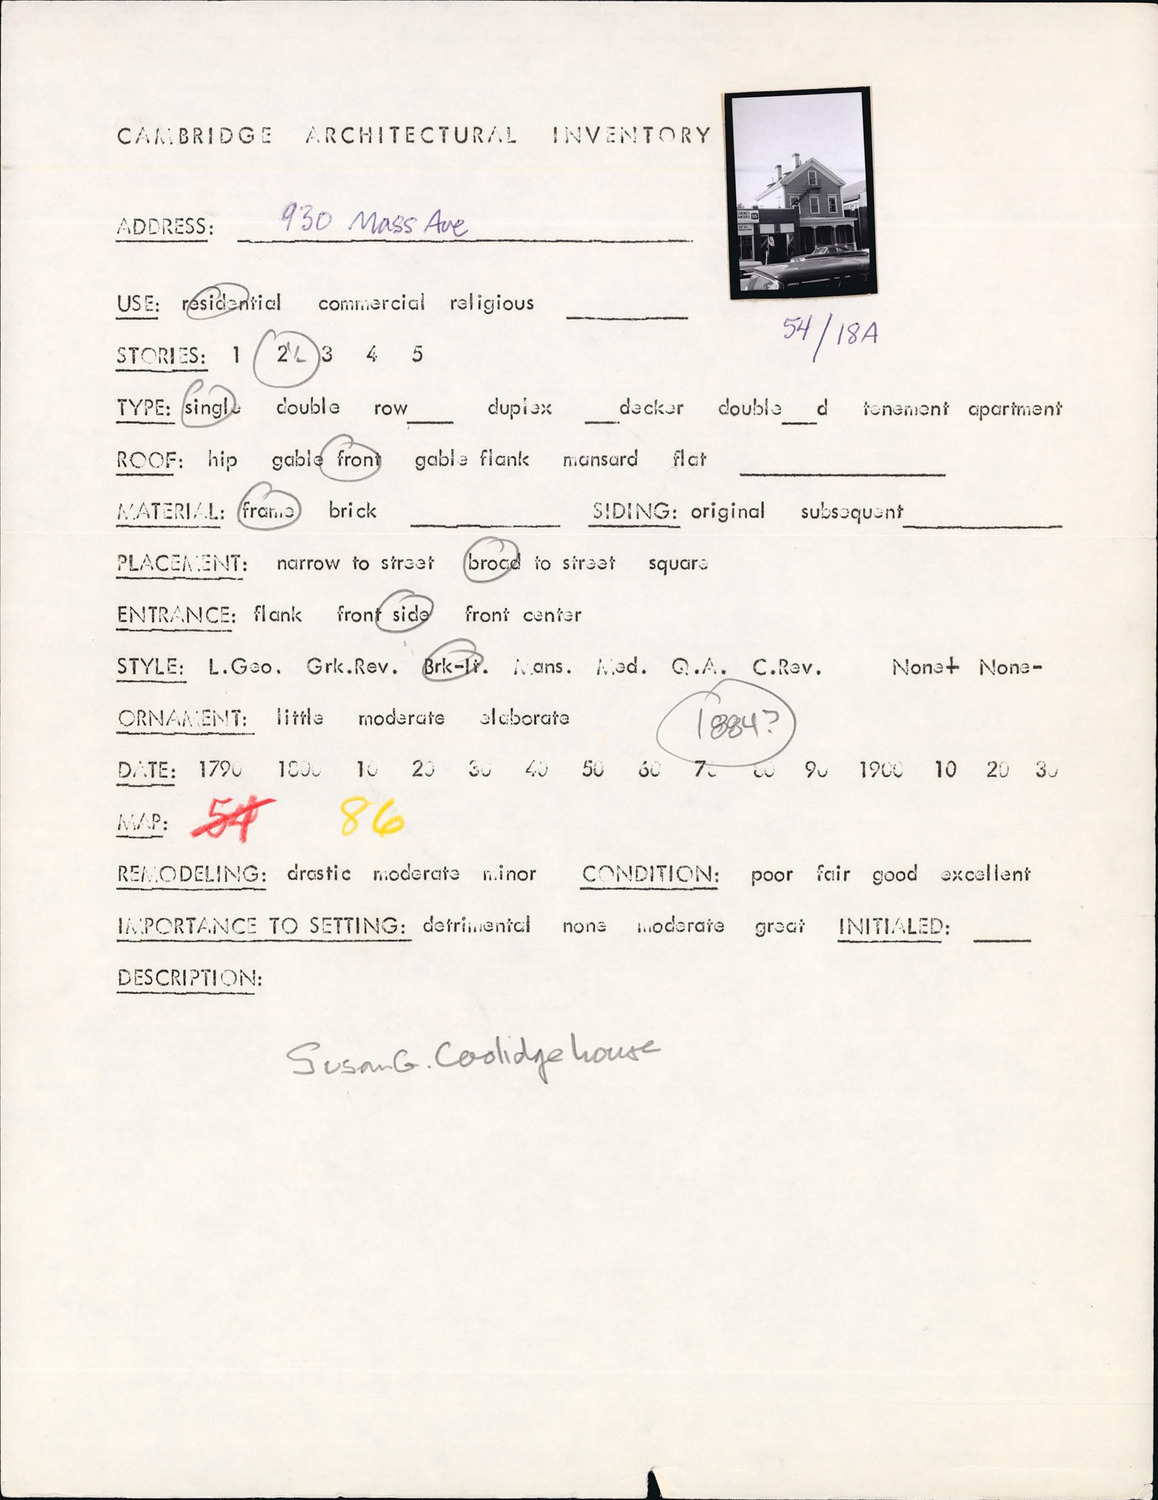 CAMBRIDGE ARCHITECTURAL INVENTORY
ADDRESS: 930 Mass Ave
54/18A
USE: residential commercial religious
STORIES: 1 2½ 3 4 5
TYPE: single double row___ duplex ___decker double___d tenement apartment
ROOF: hip gable front gable flank mansard flat
MATERIAL: frame brick SIDING: original subsequent
PLACEMENT: narrow to street broad to street square
ENTRANCE: flank front side front center
STYLE: L.Geo. Grk.Rev. Brk-It. Mans. Med. Q.A. C.Rev. None+ None-
ORNAMENT: little moderate elaborate 1884?
DATE: 1790 1800 10 20 30 40 50 60 70 80 90 1900 10 20 30
MAP: 54 86
REMODELING: drastic moderate minor CONDITION: poor fair good excellent
IMPORTANCE TO SETTING: detrimental none moderate great INITIALED:
DESCRIPTION:
Susan G. Coolidge house